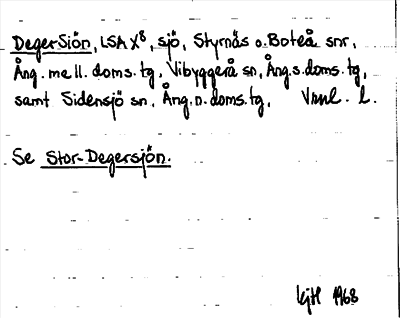 DegerSiön, LSA X8, sjö, Styrnäs o. Boteå snr,
Ång. mell. doms. tg, Vibyggerå sn, Ång. s. doms. tg,
samt Sidensjö sn, Ång. n. doms. tg, Vrml. l.
Se Stor-Degersjön.
1968